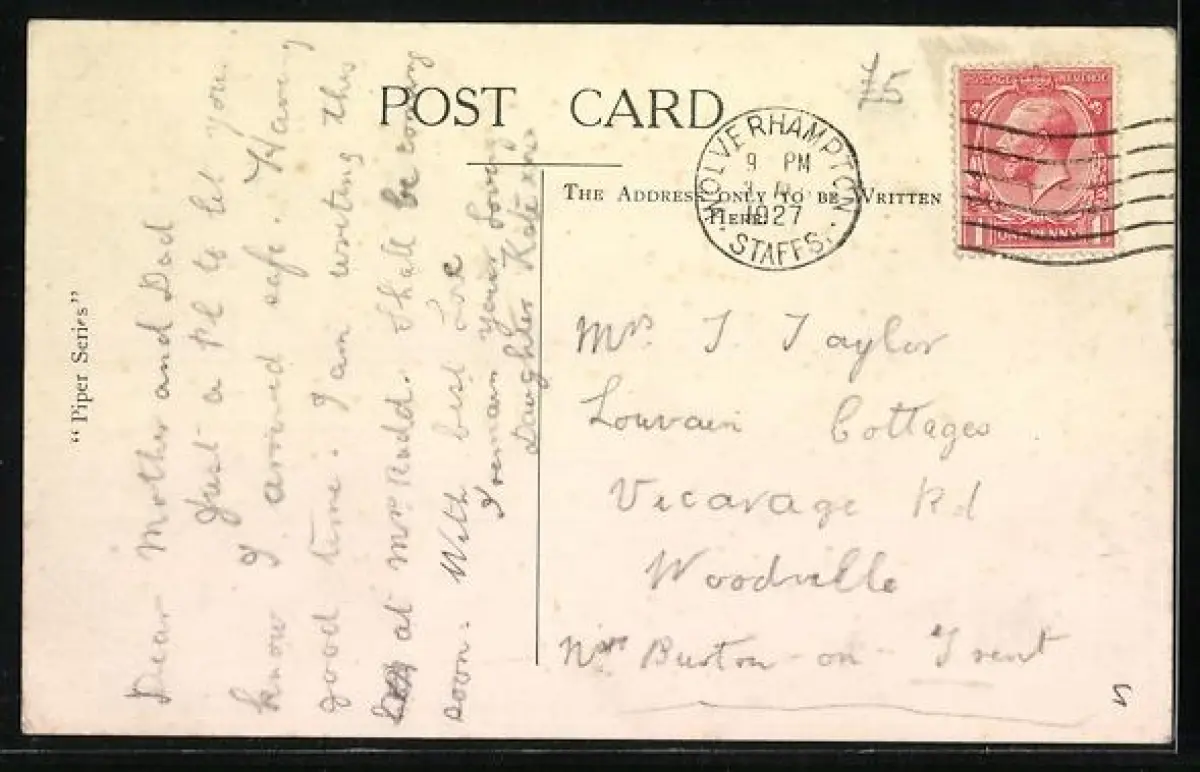 "Piper Series"
POST CARD
THE ADDRESS ONLY TO BE WRITTEN
HERE.
WOLVERHAMPTON
9 PM
1927
STAFFS.
POSTAGE REVENUE
1 ONE PENNY 1
Dear Mother and Dad
Just a P.C to let you
know I arrived safe. Having
good time. I am writing this
at Mrs Rudd. Shall be coming
soon. With best Love
I remain your loving
Daughter Kate xxx
Mrs. J. Taylor
Louvain Cottages
Vicarage Rd
Woodville
Nr Burton-on-Trent